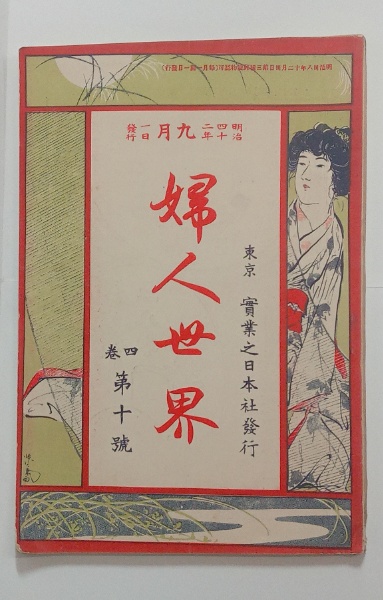 明治卅八年十二月四日第三種郵便物認可(毎月一回一日發行)
明治四十二年九月一日發行
婦人世界
東京 實業之日本社發行
四卷第十號